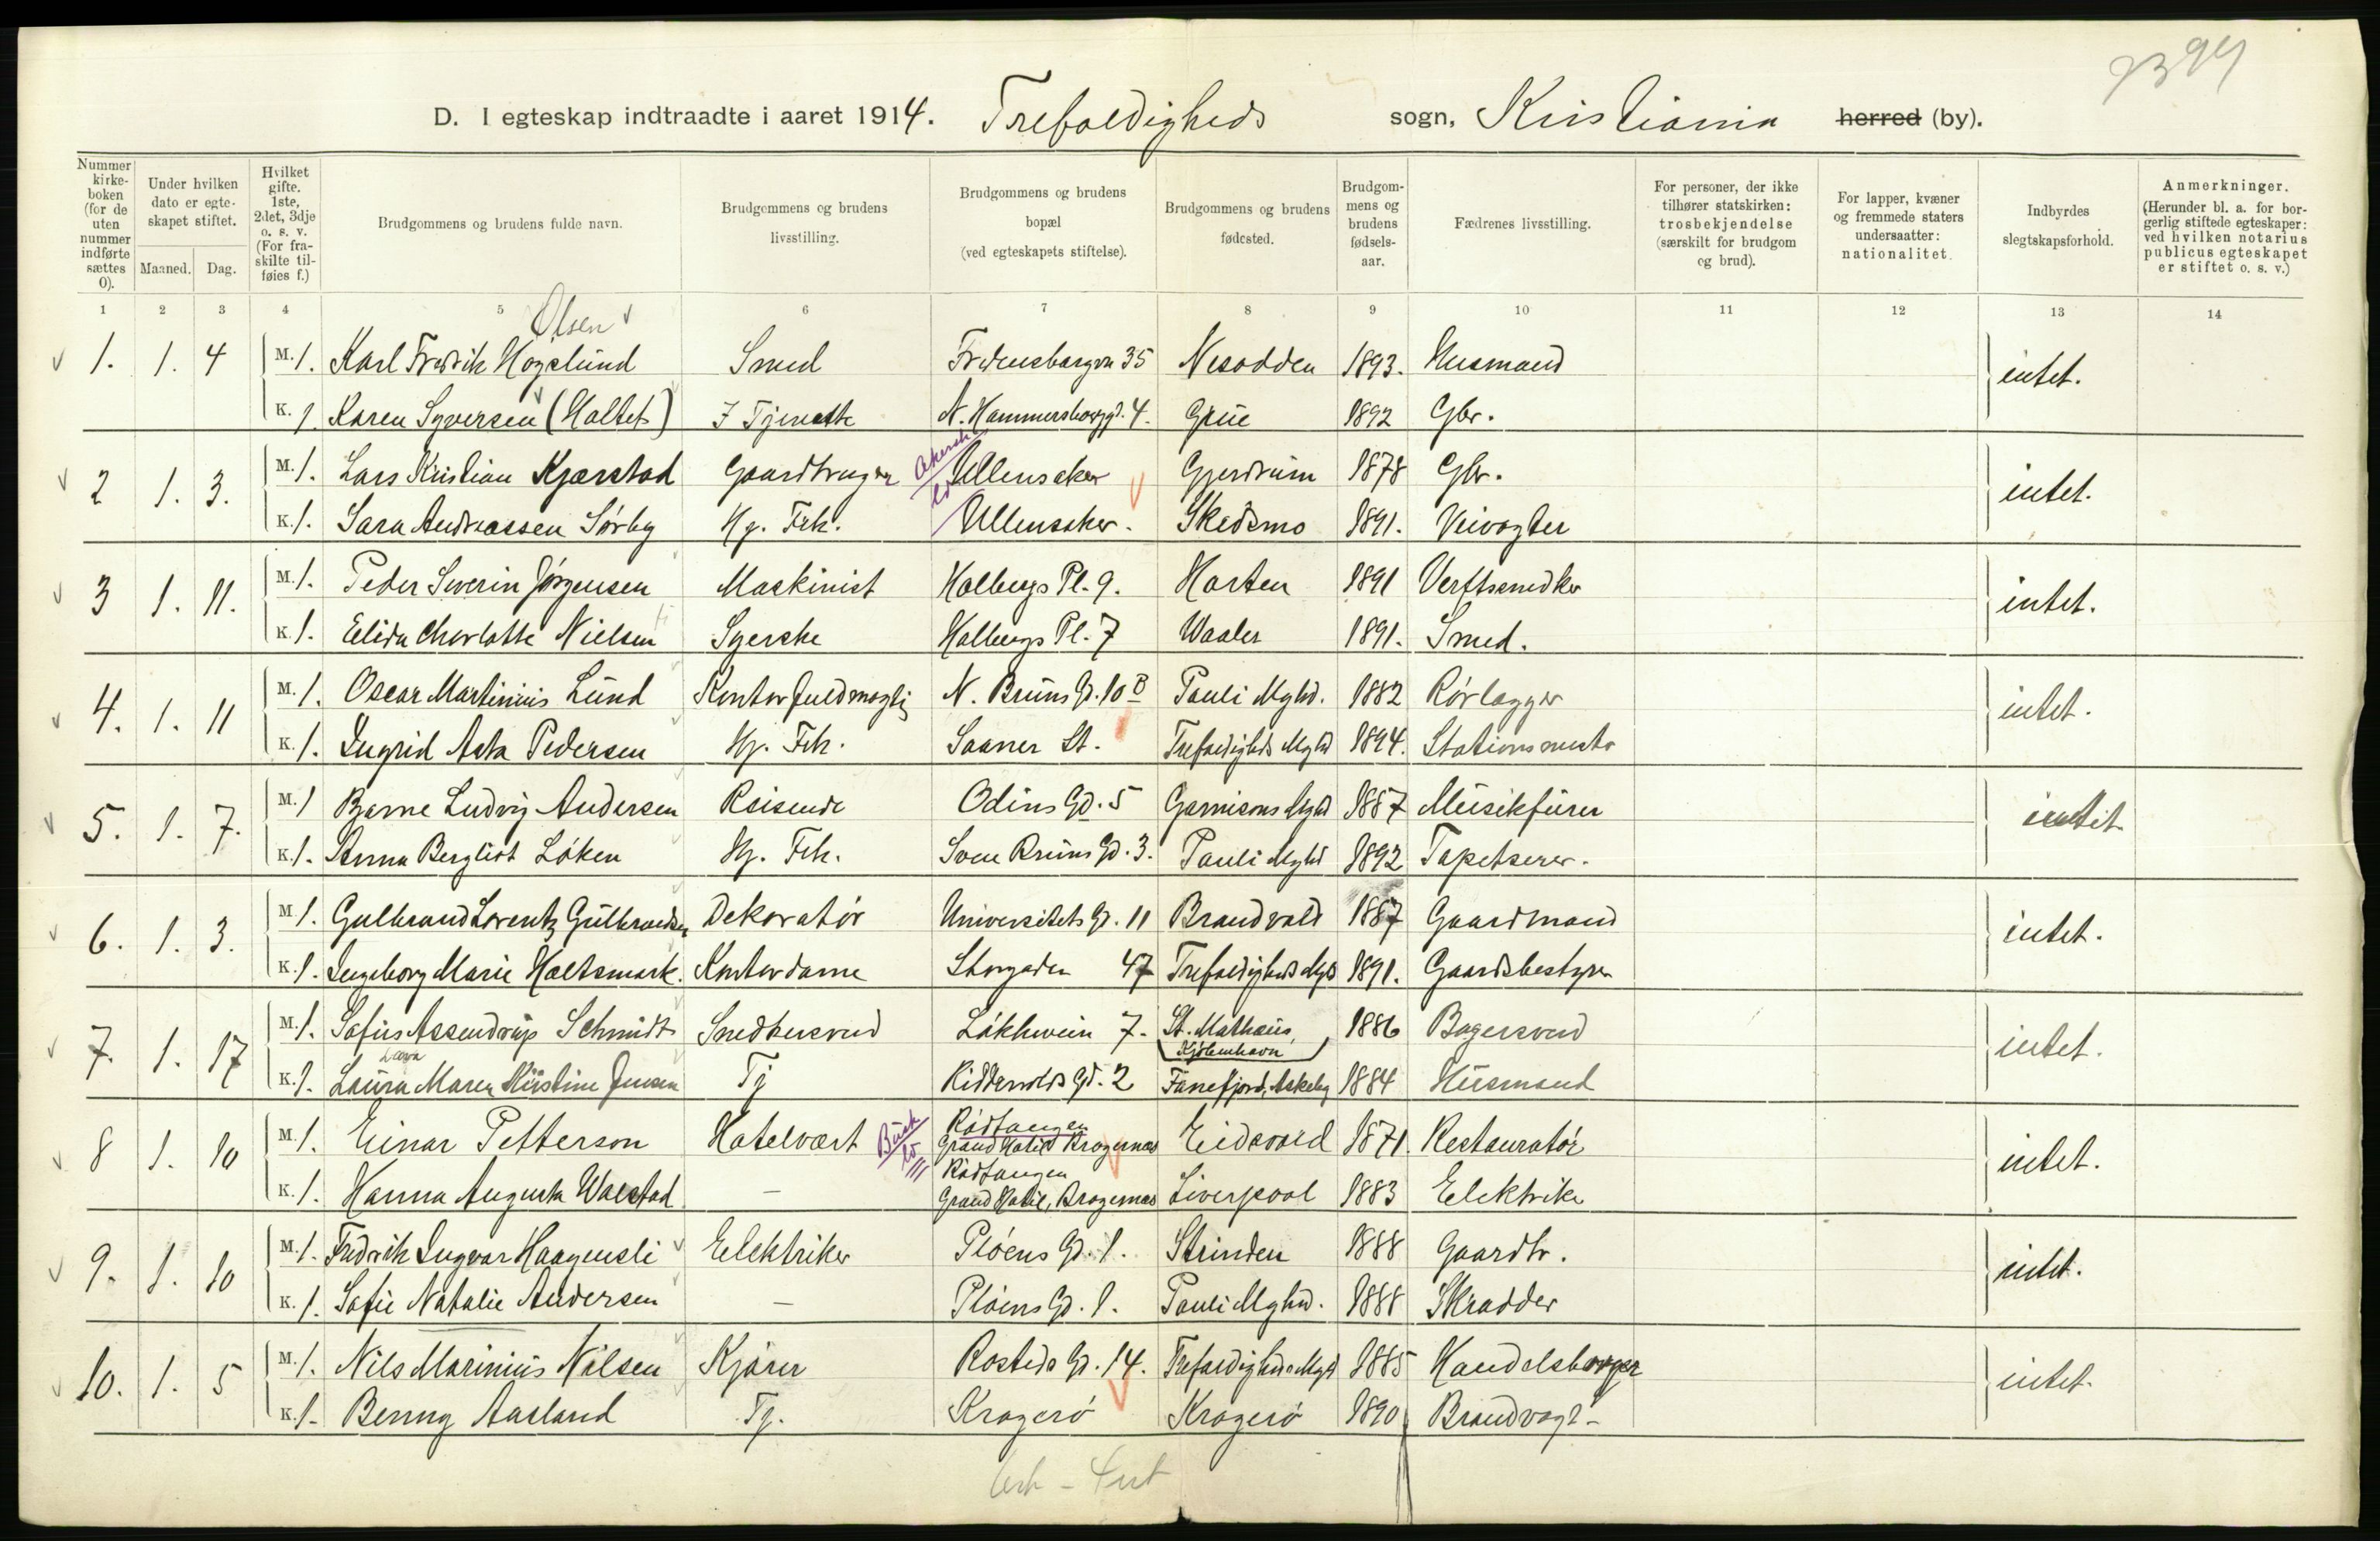 7394
D. I egteskap indtraadte i aaret 1914. Trefoldigheds sogn, Kristiania herred (by).
Nummer kirke-boken (for de uten nummer indførte sættes 0).
Under hvilken dato er egte-skapet stiftet.
Maaned. Dag.
Hvilket gifte. 1ste, 2det, 3dje o. s. v. (For fra-skilte til-føies f.)
Brudgommens og brudens fulde navn.
Brudgommens og brudens livsstilling.
Brudgommens og brudens bopæl (ved egteskapets stiftelse).
Brudgommens og brudens fødested.
Brudgom-mens og brudens fødsels-aar.
Fædrenes livsstilling.
For personer, der ikke tilhører statskirken: trosbekjendelse (særskilt for brudgom og brud).
For lapper, kvæner og fremmede staters undersaatter: nationalitet.
Indbyrdes slegtskapsforhold.
Anmerkninger. (Herunder bl. a. for bor-gerlig stiftede egteskaper: ved hvilken notarius publicus egteskapet er stiftet o. s. v.)
1 2 3 4 5 6 7 8 9 10 11 12 13 14
Olsen
1. 1. 4 M. 1. Karl Fredrik Høgslund Smed Fredensborgvn 35 Nesodden 1893. Husmand intet.
K. 1. Karen Syversen (Holtet) Tjeneste N. Hammersborggd. 4. Grue 1892 Gbr.
2 1. 3. M. 1. Lars Kristian Kjærstad Gaardbruger Akersh Ullensaker Gjerdrum 1878 Gbr. intet.
K. 1. Sara Andreassen Sørby Hg. Frk. Ullensaker. Skedsmo 1891. Veivogter
3 1. 11. M. 1. Peder Severin Jørgensen Maskinist Holbergs Pl. 9. Horten 1891 Verftssnedker intet.
K. 1. Elida Charlotte Nielsen Syerske Holbergs Pl. 7 Waaler 1891. Smed.
4. 1. 11 M. 1. Oscar Martinius Lund Kontorfuldmægtig N. Bruns Gd. 10 B Pauli Mghd. 1882 Rørlægger intet.
K. 1. Ingrid Asta Pedersen Hg. Frk. Saaner St. Trefoldigheds Mghd 1894. Stationsmester
5. 1. 7. M. 1 Bjarne Ludvig Andersen Reisende Odins Gd. 5 Garnisons Mghd 1887 Musikfører intet
K. 1. Anna Bergliot Løken Hg. Frk. Sven Bruns Gd. 3. Pauli Mghd 1892 Tapetserer.
6. 1. 3. M. 1. Gulbrand Lorentz Gulbrandsen Dekoratør Universitets Gd. 11 Brandvold 1887 Gaardmand intet.
K. 1. Ingeborg Marie Holtsmark. Kontordame Storgaden 47 Trefoldigheds Mghd 1891. Gaardsbestyrer
7. 1. 17 M. 1. Sofus Assendrup Schmidt Snedkersvend Løkkeveien 7. St. Mathæus, Kjøbenhavn 1886 Bagersvend intet.
K. 1. Laura Maren Kirstine Jensen Tj Riddervolds Gd. 2 Fanefjord, Askeby 1884 Husmand
8 1. 10 M. 1. Einar Petterson Hotelvært Busk Rødtangen Grand Hotel Bragernæs Eidsvold 1871. Restauratør intet.
K. 1. Hanna Augusta Walstad — Rødtangen Grand Hotel, Bragernæs Liverpool 1883 Elektriker
9. 1. 10 M. 1. Fredrik Ingvar Haagensli Elektriker Pløens Gd. 1. Strinden 1888 Gaardbr. intet.
K. 1. Sofie Natalie Andersen — Pløens Gd. 1. Pauli Mghd. 1888 Skrædder
10. 1. 5 M. 1. Nils Marinius Nilsen Kjører Rosteds Gd. 14. Trefoldigheds Mghd 1885 Handelsborger intet.
K. 1. Benny Aasland Tj. Kragerø Kragerø 1890 Brandvagt